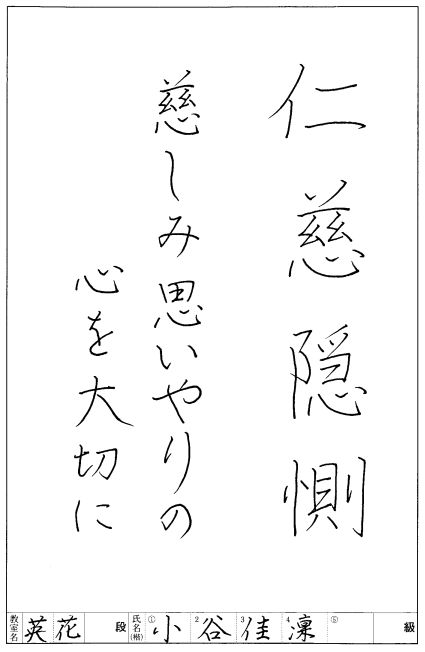 仁慈隠惻
慈しみ思いやりの
心を大切に
教室名 英花 段 氏名(楷) ①小 2谷 3佳 4凜 ⑤ 級